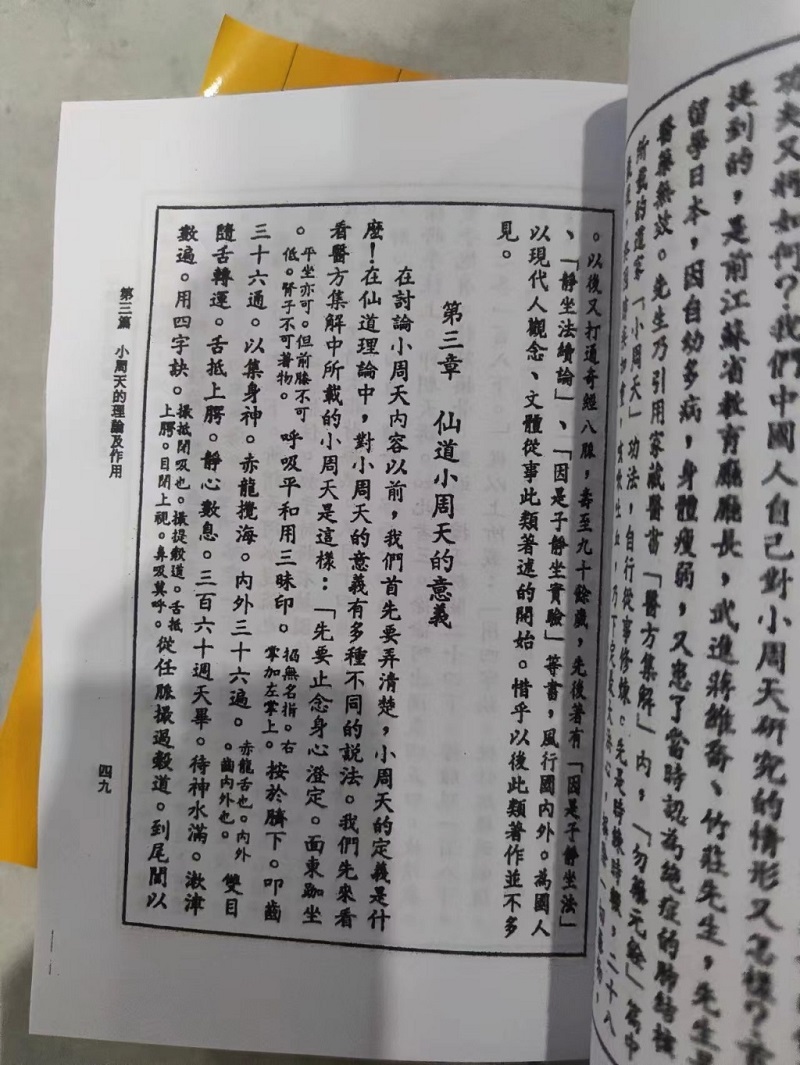 功夫又將如何？我們中國人自己對小周天研究的情形又怎樣？
提到的，是前江蘇省教育廳廳長，武進蔣維喬、竹莊先生，先生早
留學日本，因自幼多病，身體瘦弱，又患了當時認為絕症的肺結核
醫藥無效。先生乃引用家藏醫書「醫方集解」內，「勿藥元詮」篇中
所載的道家「小周天」功法，自行從事修煉。先是時練時輟，二十八
。以後又打通奇經八脈，壽至九十餘歲，先後著有「因是子靜坐法」
、「靜坐法續論」、「因是子靜坐實驗」等書，風行國內外。為國人
以現代人觀念、文體從事此類著述的開始。惜乎以後此類著作並不多
見。
第三章 仙道小周天的意義
在討論小周天內容以前，我們首先要弄清楚，小周天的定義是什
麼！在仙道理論中，對小周天的意義有多種不同的説法。我們先來看
看醫方集解中所載的小周天是這樣：「先要止念身心澄定。面東跏坐
。平坐亦可。但前膝不可低。腎子不可著物。呼吸平和用三昧印。掐無名指。右掌加左掌上。按於臍下。叩齒
三十六通。以集身神。赤龍攪海。內外三十六遍。赤龍舌也。內外。齒內外也。雙目
隨舌轉運。舌抵上腭。靜心數息。三百六十週天畢。待神水滿。漱津
數遍。用四字訣。撮抵閉吸也。撮提穀道。舌抵上腭。目閉上視。鼻吸莫呼。從任脈撮過穀道。到尾閭以
第三篇 小周天的理論及作用
四九